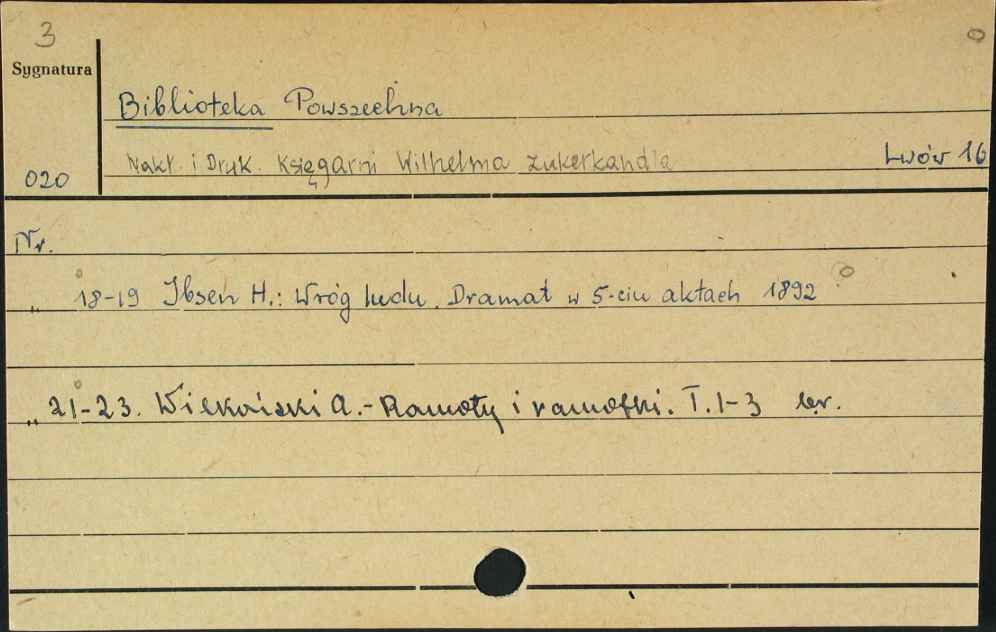 3
Sygnatura
Biblioteka Powszechna
Nakł. i Druk. Księgarni Wilhelma Zukerkandla
Lwów 16
020
Nr.
„ 18-19 Ibsen H.: Wróg ludu. Dramat w 5-ciu aktach 1892
„ 21-23. Wilkoński A.- Ramoty i ramotki. T. 1-3 b.r.